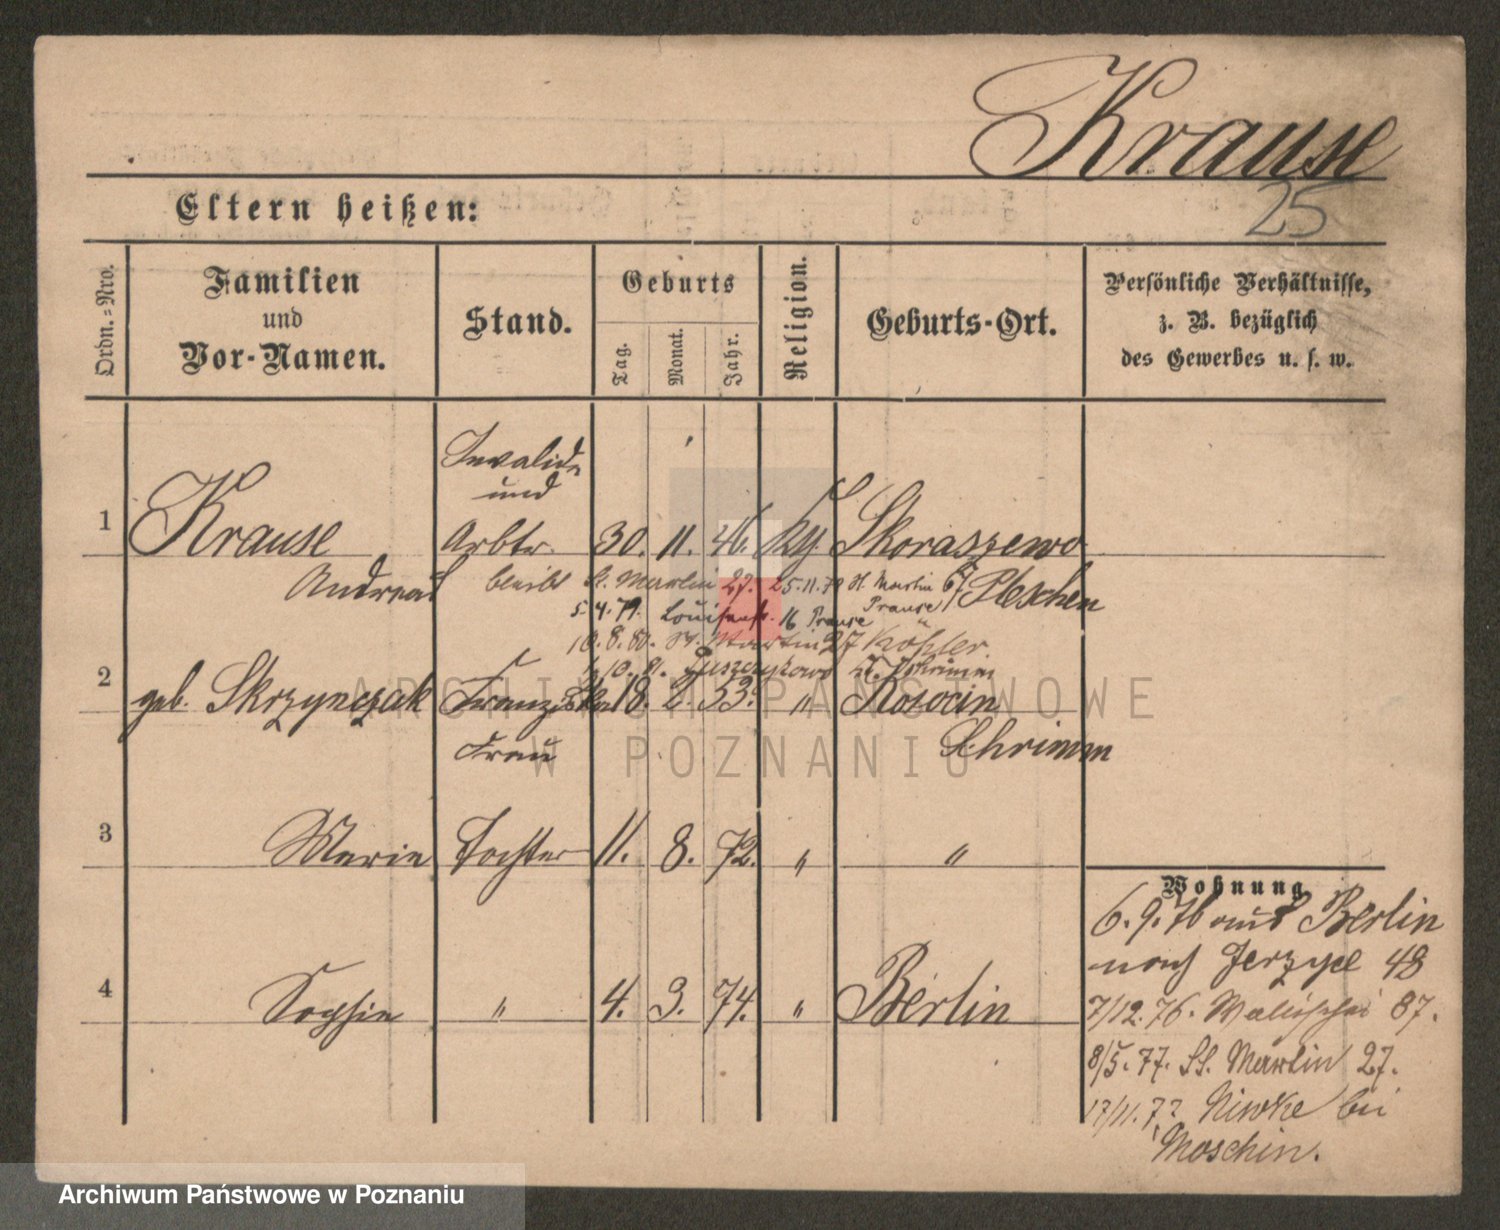 Krause
25
Eltern heißen:
Ordn.-Nro.
Familien
und
Vor-Namen.
Stand.
Geburts
Tag.
Monat.
Jahr.
Religion.
Geburts-Ort.
Persönliche Verhältnisse,
z. B. bezüglich
des Gewerbes u. s. w.
Invalide
und
1 Krause Arbtr. 30. 11. 46. Skoraszewo
Andreas bleibt St. Martin 27. 25.11.79 St. Martin 67 Pleschen
5.4.79. Louisenstr. 16 Prause Prause
10.8.80. St. Martin 27 Köhler.
10.81. Puszczykowo Schrimm
2 geb. Skrzypczak Franziska 18. 2. 53. " Rosocin
Frau Schrimm
3 Marie Tochter 11. 8. 72. " "
Wohnung
6.9.76 aus Berlin
nach Jerzyce 48
4 Sophie " 4. 3. 74. " Berlin
7/12.76. Wallischei 87.
8/5.77. St. Martin 27.
17/11.77 Niwke bei
Moschin.
ARCHIWUM PAŃSTWOWE
W POZNANIU
Archiwum Państwowe w Poznaniu